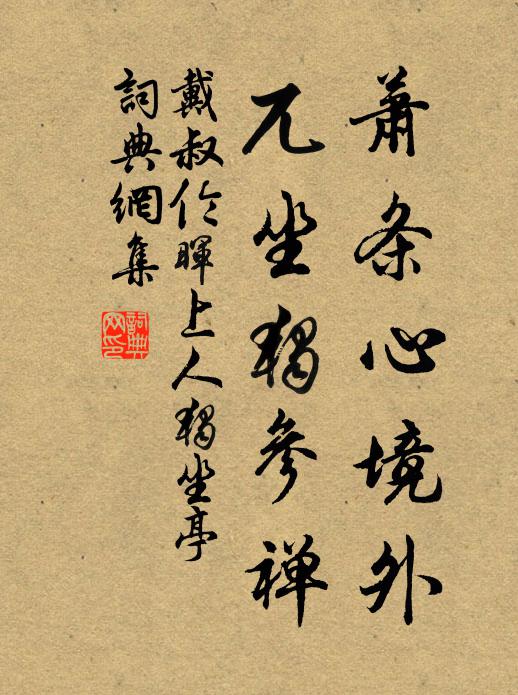 萧条心境外
兀坐独参禅
戴叔伦晖上人独坐亭
詞典網集
詞典网印